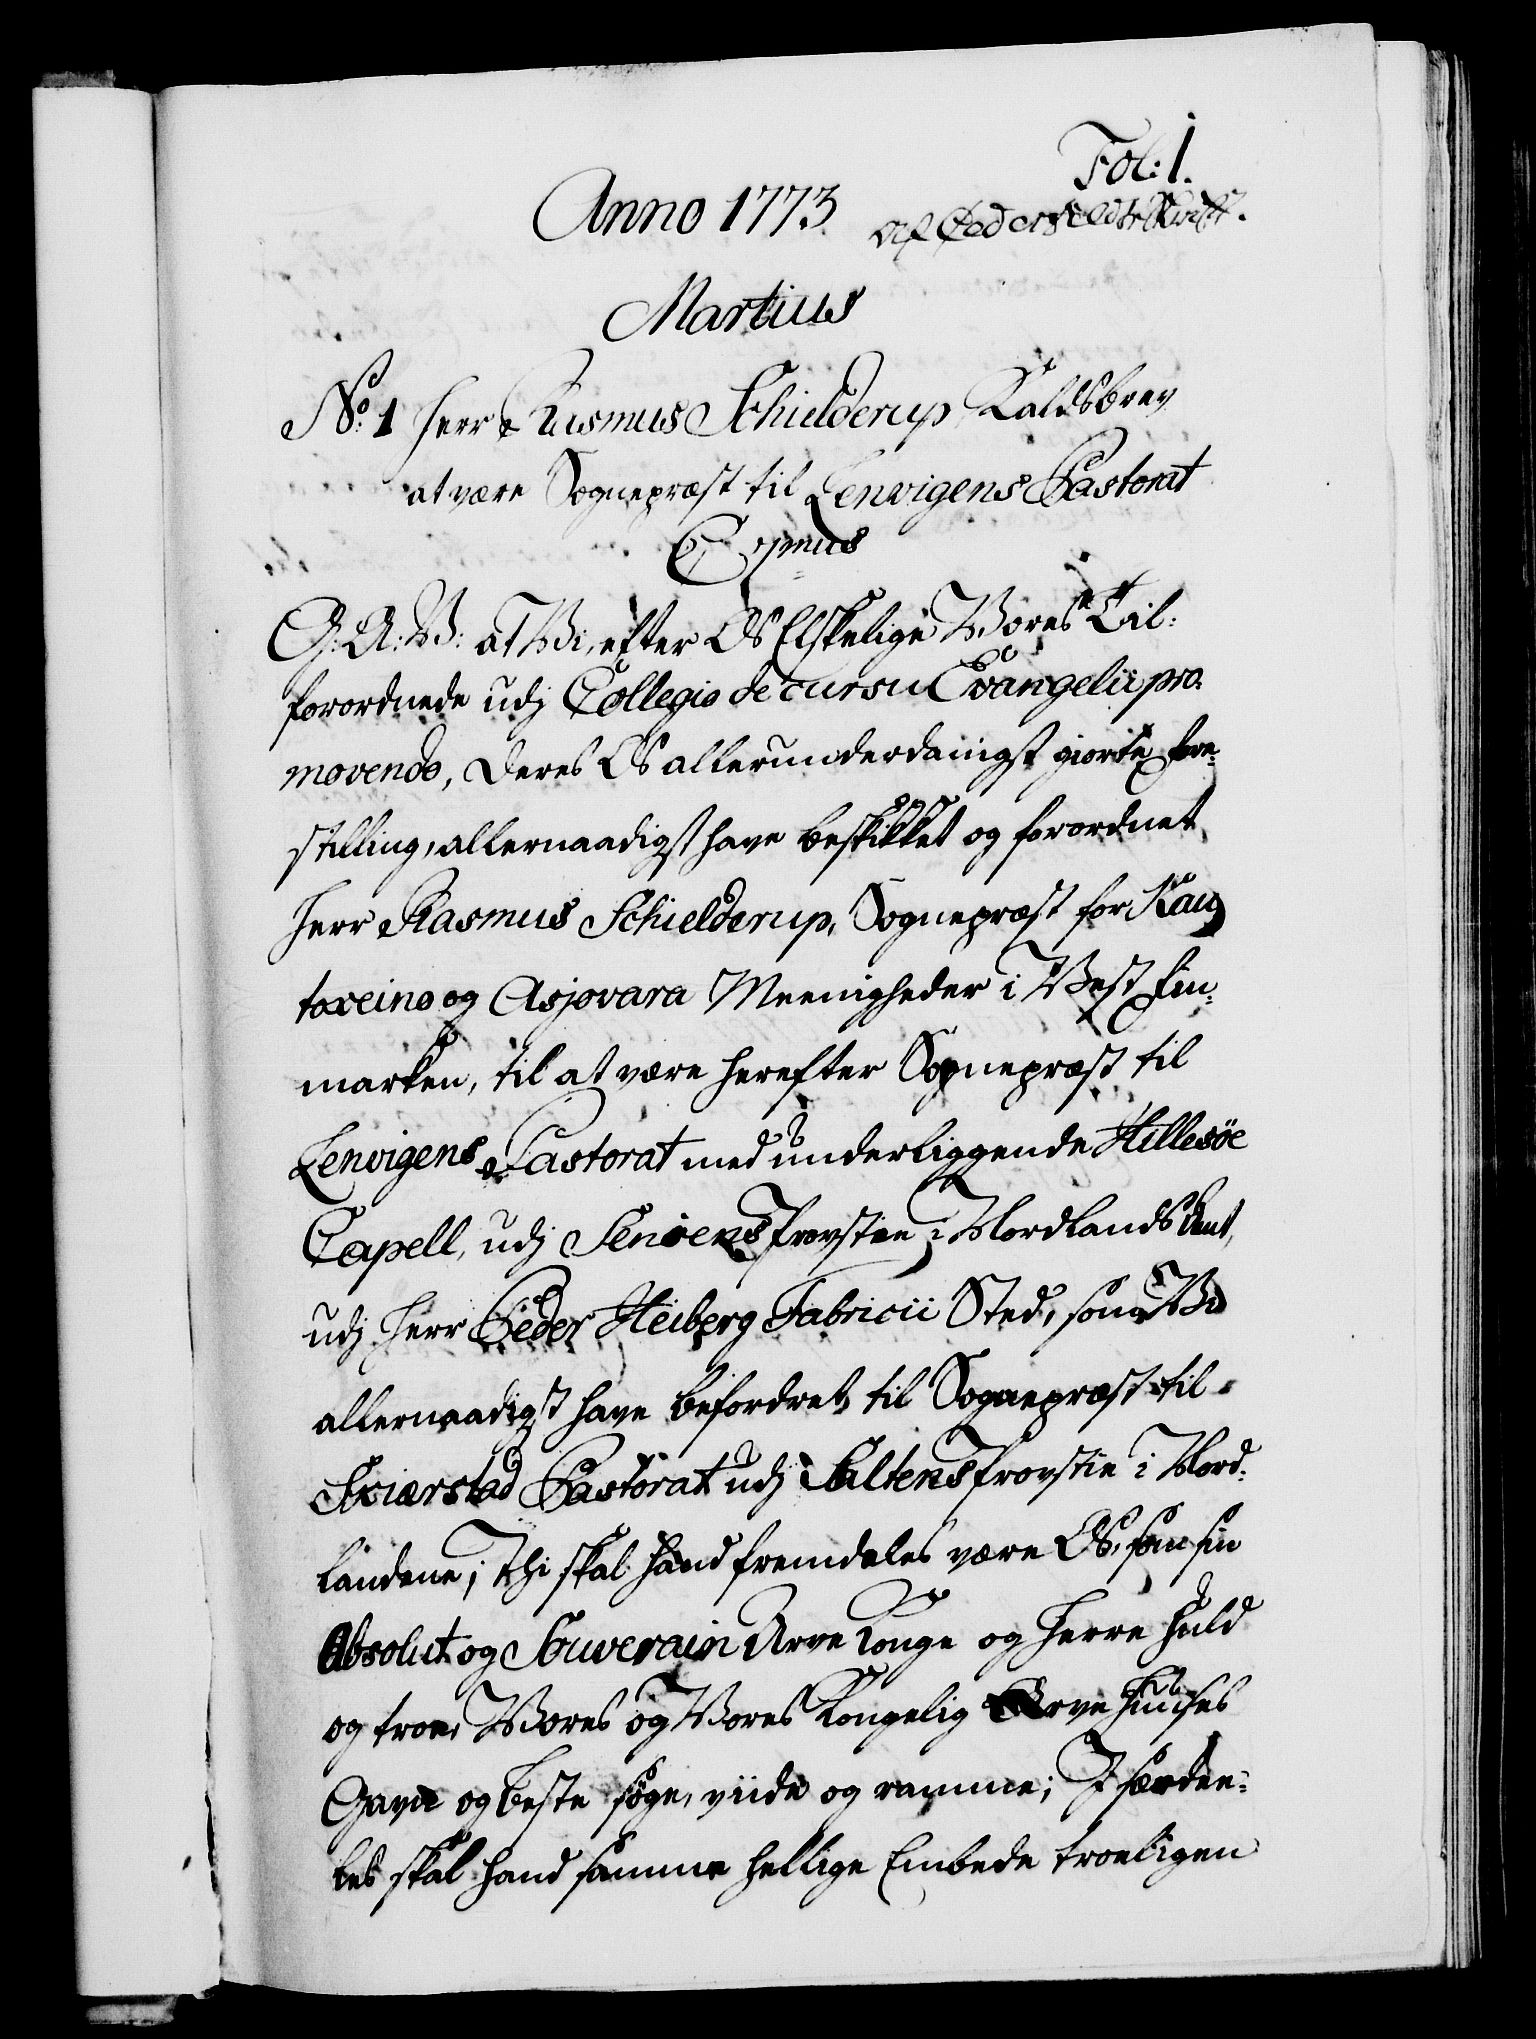 Fol: 1.
Anno 1773
Martius
No: 1 Herr Rasmus Schielderup Kaldsbrev
at være Sognepræst til Lenvigens Pastorat
C 7mus
G: A: V: at Vi, efter Os Elskelige Vores Til-
forordnede udj Collegio de cursu Evangelii pro-
movendo, deres Os allerunderdanigst giorte fore-
stilling, allernaadigst have beskikket og forordnet
Herr Rasmus Schielderup, Sognepræst for Kau-
toxeino og Asjovara Meenigheder i Vest Fin-
marken, til at være herefter Sognepræst til
Lenvigens Pastorat med underliggende Hillesøe
Capell, udj Seniens Provstie i Nordlands Amt,
udj Herr Peder Heiberg Fabricii Sted, som Vi
allernaadigst have befordret til Sognepræst til
Skiærstad Pastorat udj Saltens Provstie i Nord-
landene; Thi skal hand fremdeles være Os, som sin
Absolut og Souverain Arve Konge og Herre huld
og troe, Vores og Vores Kongelig Arve Huuses
Gavn og beste søge, viide og ramme; I særdee-
les skal hand samme hellige Embede troeligen